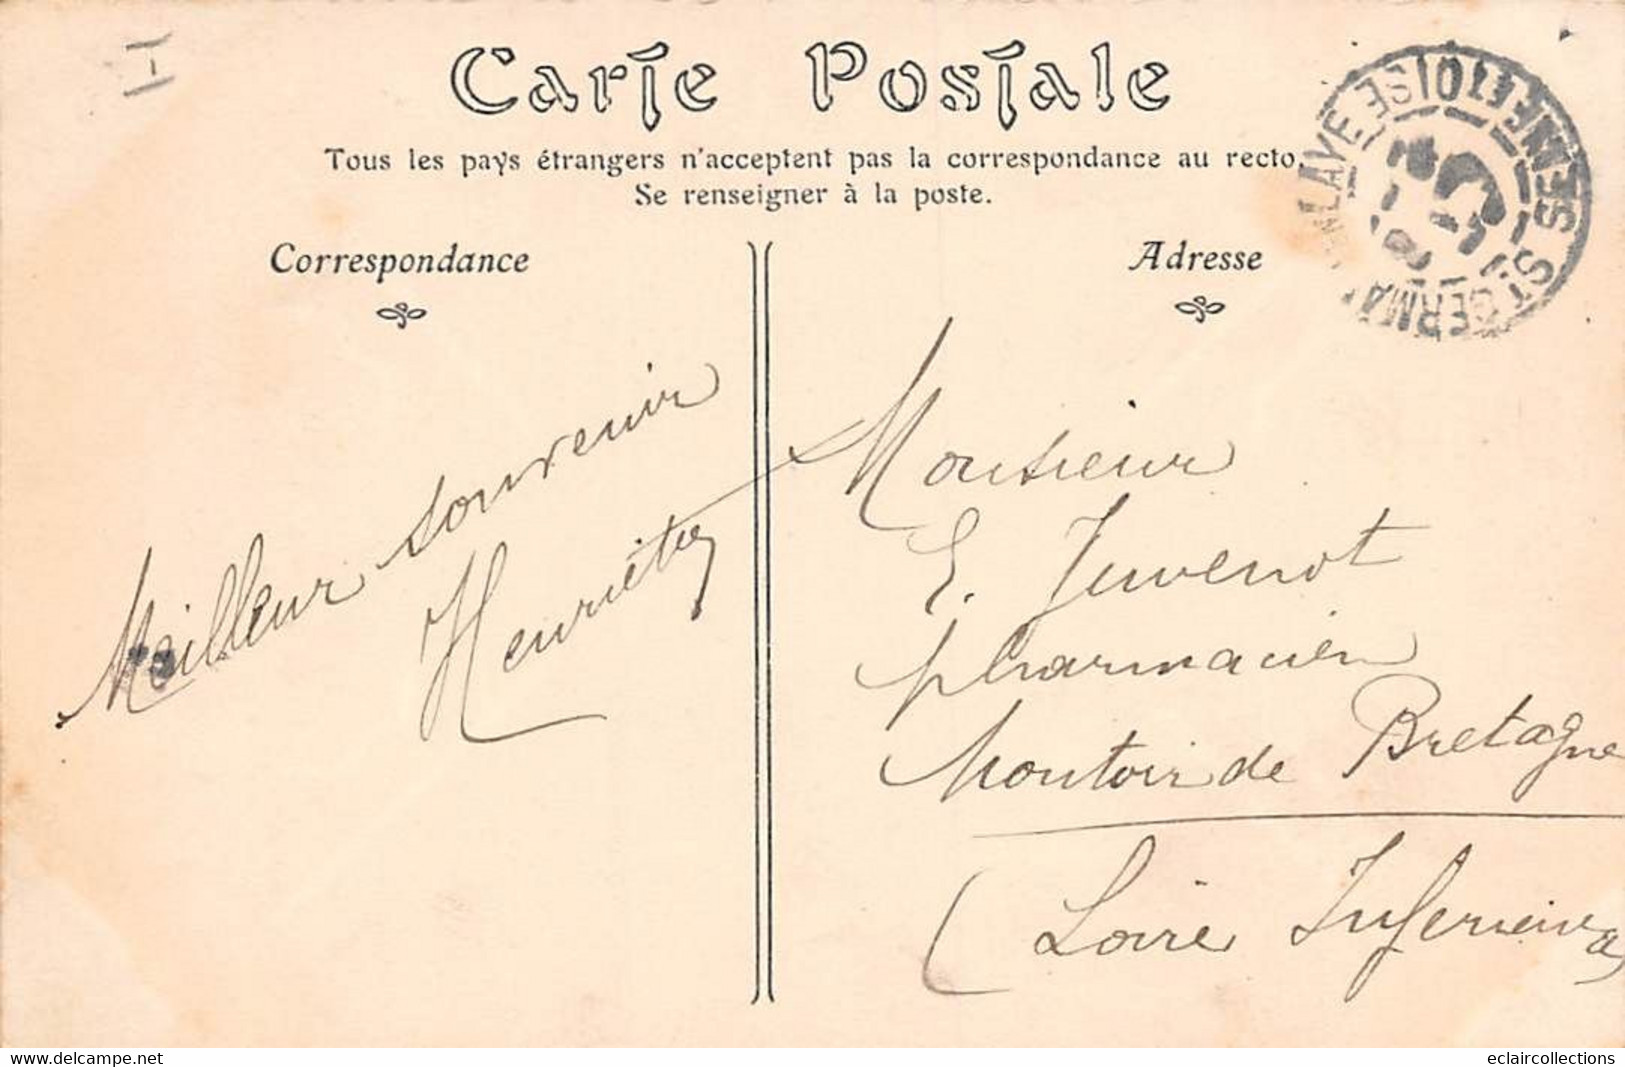 Carte Postale
Tous les pays étrangers n'acceptent pas la correspondance au recto.
Se renseigner à la poste.
Correspondance
Adresse
ST GERMAIN EN LAYE
SEINE-ET-OISE
Meilleur souvenir
Henriette
Monsieur
E. Juvenot
pharmacien
Montoir de Bretagne
(Loire Inferieure)
www.delcampe.net
eclaircollections